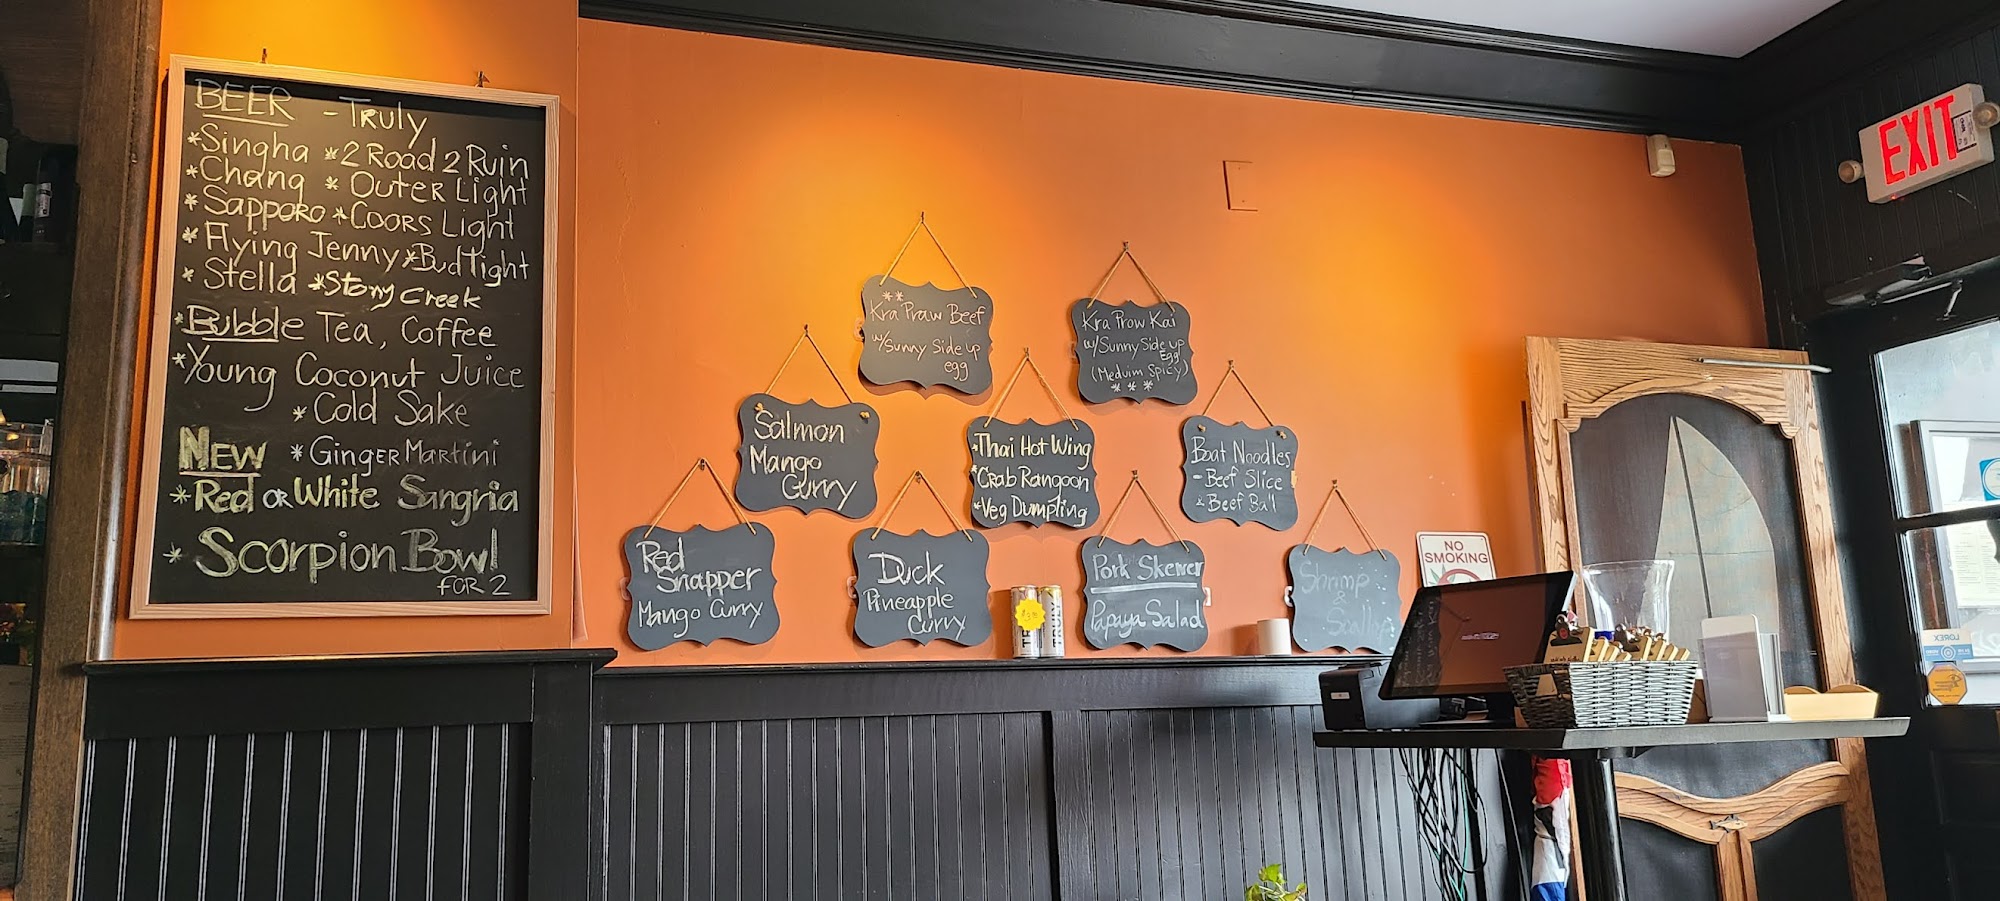 BEER - Truly
*Singha *2 Road 2 Ruin
*Chang * Outer Light
*Sapporo *Coors Light
*Flying Jenny *Bud light
*Stella *Stony Creek
*Bubble Tea, Coffee
*Young Coconut Juice
*Cold Sake
NEW *Ginger Martini
*Red or White Sangria
*Scorpion Bowl
FOR 2
**
Kra Praw Beef
w/Sunny Side up
egg
Kra Prow Kai
w/Sunny Side up
Egg
(Meduim Spicy)
***
Salmon
Mango
Curry
*Thai Hot Wing
*Crab Rangoon
*Veg Dumpling
Boat Noodles
- Beef Slice
& Beef Ball
Red
Snapper
Mango Curry
Duck
Pineapple
Curry
Pork Skewer
Papaya Salad
Shrimp
&
Scallop
NO
SMOKING
TRULY
EXIT
LOREX